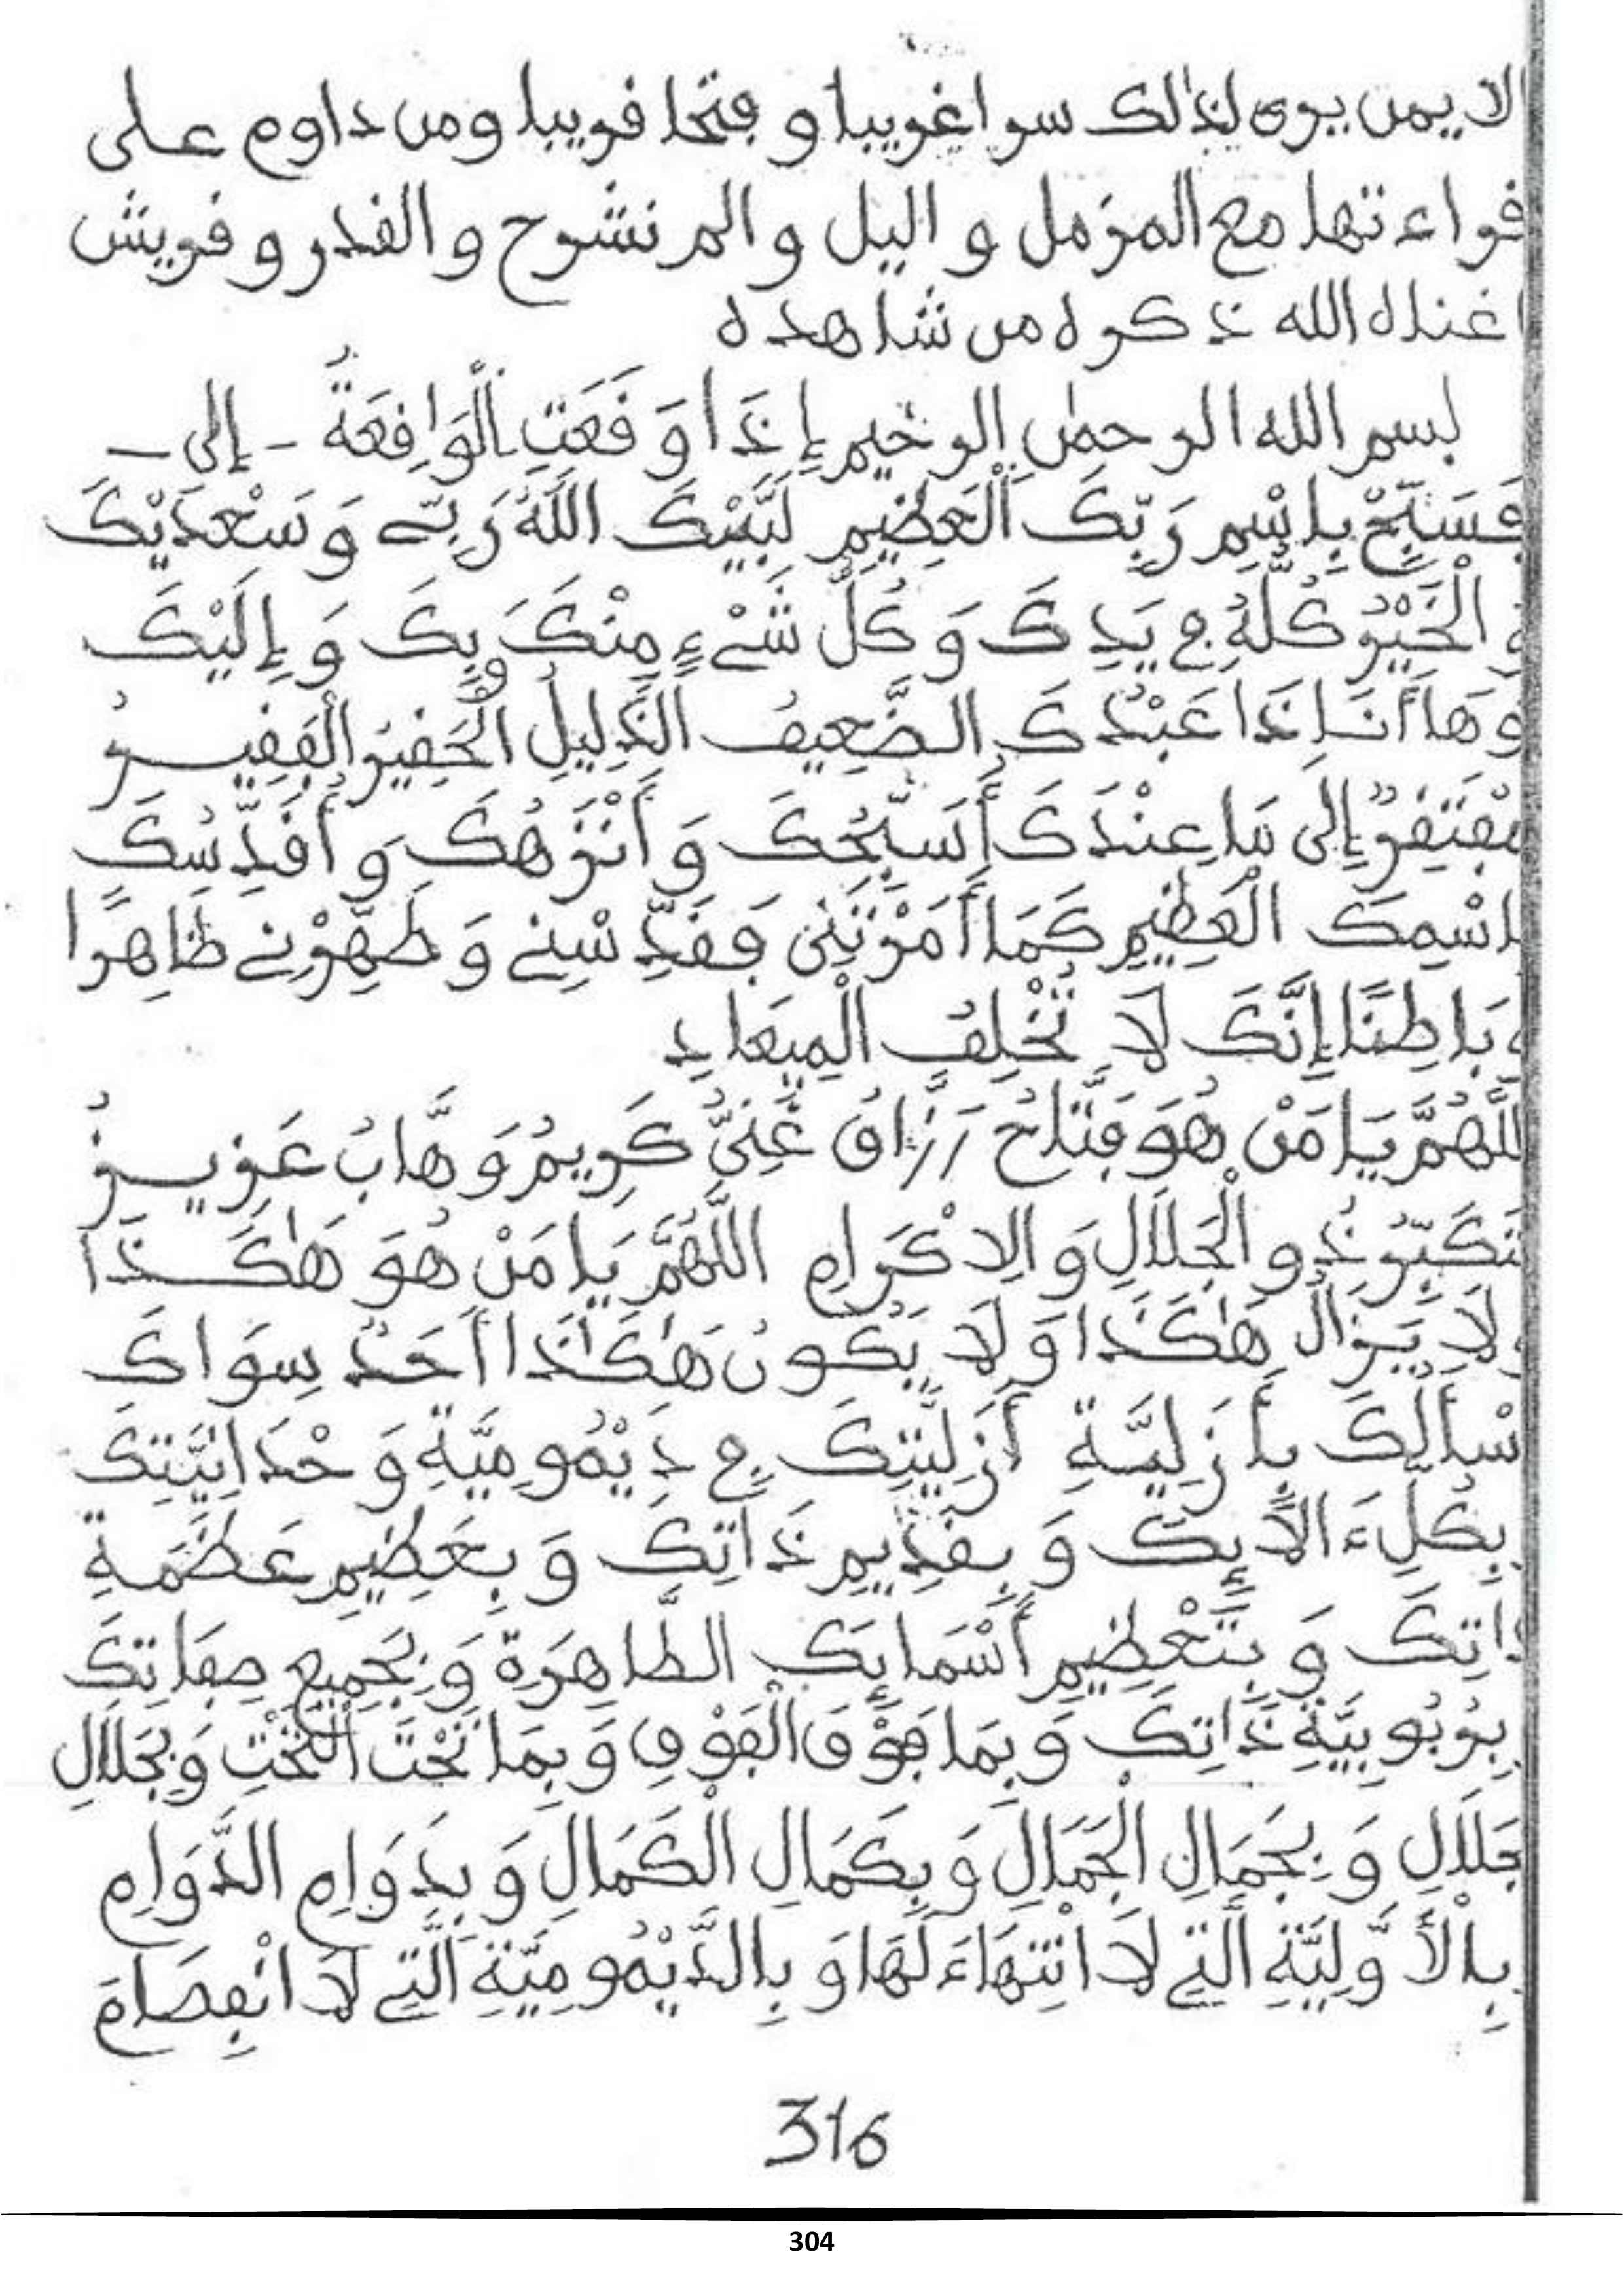 الا يمن يرى لذلك سرا غريبا و فتحا قريبا ومن داوم على
قراءتها مع المزمل و اليل و الم نشرح و القدر و قريش
اغناه الله ذكره من شاهده
بسم الله الرحمٰن الرحيم إِذَا وَقَعَتِ الْوَاقِعَةُ - إلى -
فَسَبِّحْ بِاسْمِ رَبِّكَ الْعَظِيمِ لَبَّيْكَ اللَّهُ رَبِّے وَسَعْدَيْكَ
وَ الْخَيْرُ كُلُّهُ فِي يَدِكَ وَ كُلُّ شَيْءٍ مِنْكَ وَبِكَ وَ إِلَيْكَ
وَ هَا أَنَا إِذَا عَبْدُكَ الضَّعِيفُ الذَّلِيلُ الْحَقِيرُ الْفَقِيرُ
مُفْتَقِرٌ إِلَى مَا عِنْدَكَ أُسَبِّحُكَ وَ أُنَزِّهُكَ وَ أُقَدِّسُكَ
بِاسْمِكَ الْعَظِيمِ كَمَا أَمَرْتَنِى فَقَدِّسْنِے وَ طَهِّرْنِے ظَاهِرًا
وَ بَاطِنًا إِنَّكَ لَا تُخْلِفُ الْمِيعَادِ
اللَّهُمَّ يَا مَنْ هُوَ فَتَّاحُ رَزَّاقُ غَنِيُّ كَرِيمُ وَهَّابُ عَزِيزُ
مُتَكَبِّرُ ذُو الْجَلَالِ وَ الِاكْرَامِ اللَّهُمَّ يَا مَنْ هُوَ هَٰكَذَا
وَ لَا يَزَالُ هَٰكَذَا وَ لَا يَكُونُ هَٰكَذَا أَحَدٌ سِوَاكَ
أَسْأَلُكَ بِأَزَلِيَّةِ أَزَلِيَّتِكَ فِي دَيْمُومِيَّةِ وَحْدَانِيَّتِكَ
بِكُلِّ ءَالَائِكَ وَ بِقَدِيمِ ذَاتِكَ وَ بِعَظِيمِ عَظَمَةِ
ذَاتِكَ وَ بِتَعْظِيمِ أَسْمَائِكَ الطَّاهِرَةِ وَ بِجَمِيعِ صِفَاتِكَ
بِرُبُوبِيَّةِ ذَاتِكَ وَ بِمَا فَوْقَ الْفَوْقِ وَ بِمَا تَحْتَ التَّحْتِ وَ بِجَلَالِ
جَلَالِ وَ بِجَمَالِ الْجَمَالِ وَ بِكَمَالِ الْكَمَالِ وَ بِدَوَامِ الدَّوَامِ
بِالْأَوَّلِيَّةِ الَّتِے لَا انْتِهَاءَ لَهَا وَ بِالدَّيْمُومِيَّةِ الَّتِے لَا انْفِصَامَ
316
304